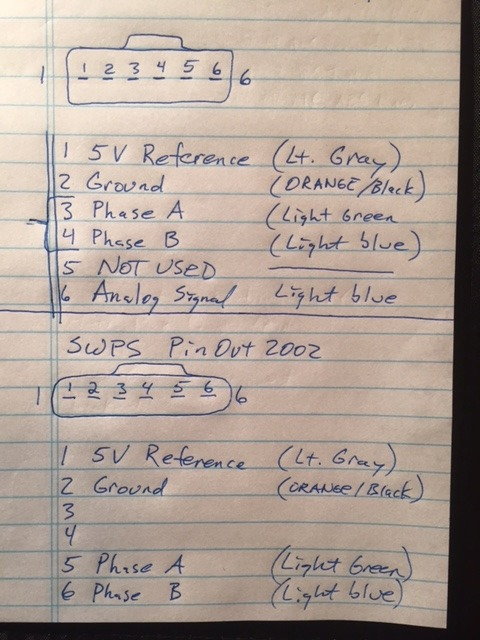 1 1 2 3 4 5 6 6
1 5V Reference (Lt. Gray)
2 Ground (ORANGE/Black)
3 Phase A (Light Green
4 Phase B (Light blue)
5 NOT USED
6 Analog Signal Light blue
SWPS Pin Out 2002
1 1 2 3 4 5 6 6
1 5V Reference (Lt. Gray)
2 Ground (ORANGE/Black)
3
4
5 Phase A (Light Green)
6 Phase B (Light blue)